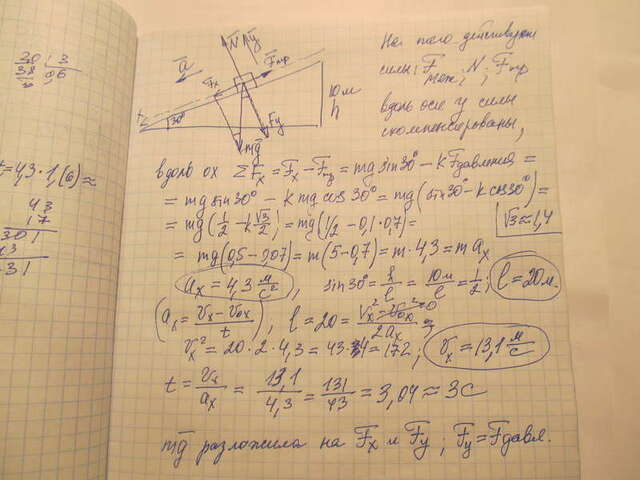 30 | 3
t = 4,3 · 1,(6) ≈
43
17
301
43
731
N̄ ȳ
F̄тр
ā
Fx
x
30°
Fy
mḡ
10 м
h
На тело действуют
силы: F̄тяж; N̄; F̄тр
вдоль оси y силы
скомпенсированы,
вдоль ox ΣF̄x = F̄x − F̄тр = mg sin30° − k Fдавления =
= mg sin30° − k mg cos30° = mg (sin30° − k cos30°) =
= mg (1/2 − k √3/2) = mg (1/2 − 0,1·0,7) =
√3 ≈ 1,4
= mg (0,5 − 0,07) = m (5 − 0,7) = m · 4,3 = m ax
ax = 4,3 м/с², sin30° = h/l = 10м/l = 1/2; l = 20 м.
(ax = (vx − v0x)/t), l = 20 = (vx² − v0x²)/2ax =0 ;
vx² = 20 · 2 · 4,3 = 43 · 4 = 172; vx = 13,1 м/с
t = vx/ax = 13,1/4,3 = 131/43 = 3,04 ≈ 3 с
mḡ разложила на F̄x и F̄y; F̄y = F̄давл.